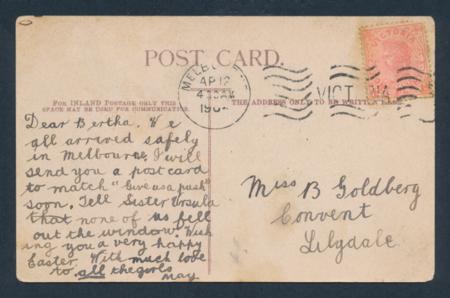 POST CARD.
VICTORIA
MELBOURNE
AP 12
4 30 AM
190
VICTORIA
FOR INLAND POSTAGE ONLY THIS
SPACE MAY BE USED FOR COMMUNICATION.
THE ADDRESS ONLY TO BE WRITTEN HERE.
Dear Bertha, We
all arrived safely
in Melbourne, I will
send you a post card
to match "Give us a push"
soon. Tell Sister Ursula
that none of us fell
out the window. Wish
ing you a very happy
Easter. With much love
to all the girls
May
Miss B Goldberg
Convent
Lilydale.